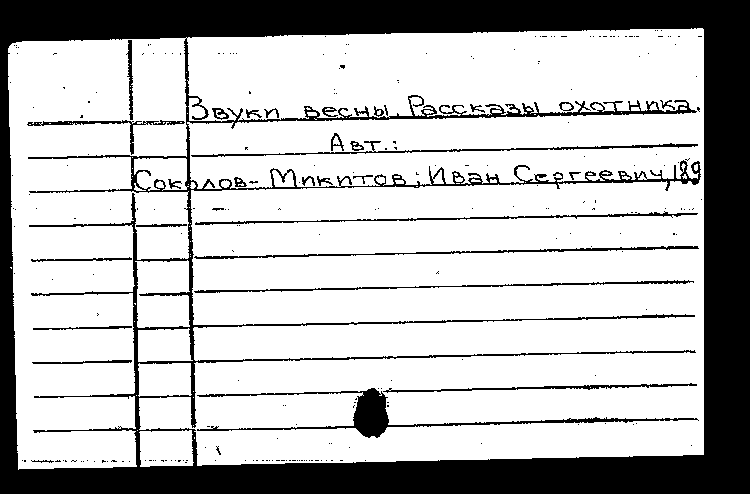 Звуки весны. Рассказы охотника.
Авт.:
Соколов-Микитов; Иван Сергеевич, 189